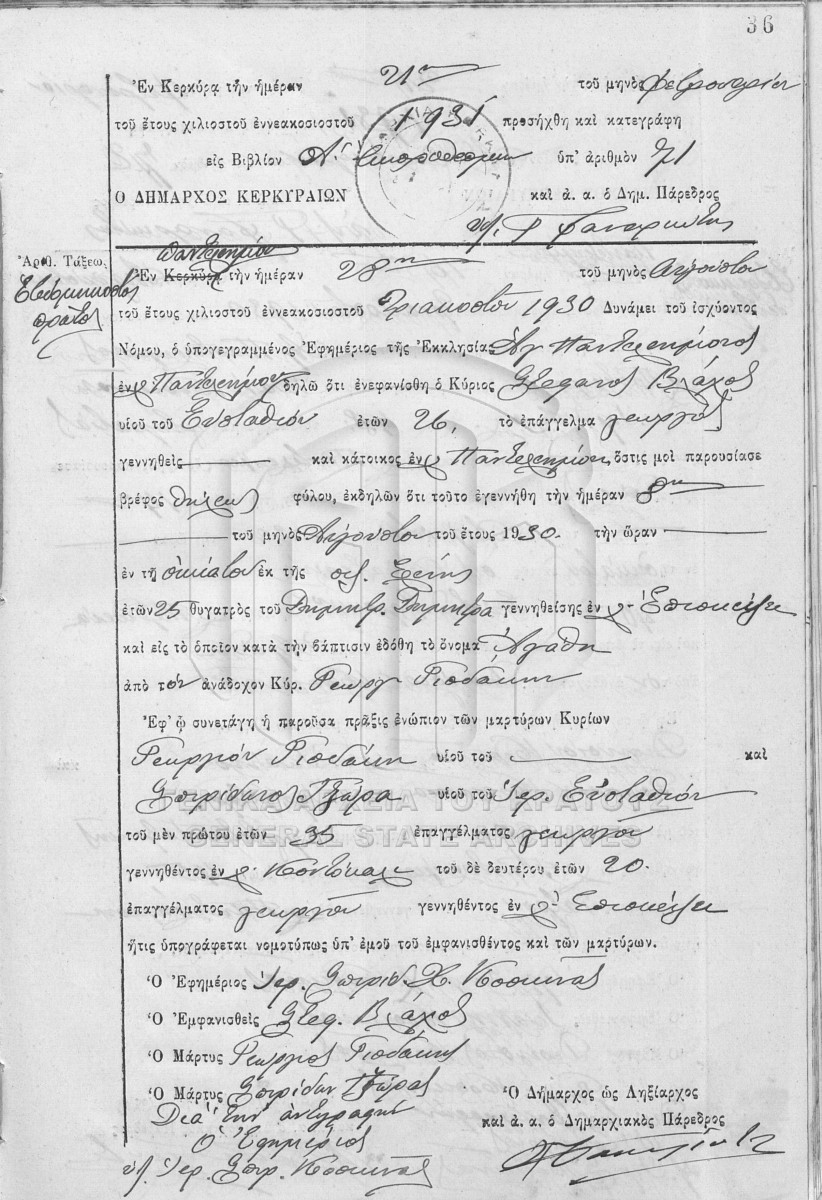 36
Ἐν Κερκύρᾳ τὴν ἡμέραν 21ην τοῦ μηνὸς Φεβρουαρίου
τοῦ ἔτους χιλιοστοῦ ἐννεακοσιοστοῦ 1931 προσήχθη καὶ κατεγράφη
εἰς Βιβλίον Α' ὑπ' ἀριθμὸν 71
Ο ΔΗΜΑΡΧΟΣ ΚΕΡΚΥΡΑΙΩΝ καὶ ἀ. α. ὁ Δημ. Πάρεδρος
Ἀριθ. Τάξεως
Ἑβδομηκοστὸς
πρῶτος
Παντελεήμονι
Ἐν Κερκύρᾳ τὴν ἡμέραν 28ην τοῦ μηνὸς Αὐγούστου
τοῦ ἔτους χιλιοστοῦ ἐννεακοσιοστοῦ Τριακοστοῦ 1930 Δυνάμει τοῦ ἰσχύοντος
Νόμου, ὁ ὑπογεγραμμένος Ἐφημέριος τῆς Ἐκκλησίας Ἁγ Παντελεήμονος
ἐν χ. Παντελεήμονι δηλῶ ὅτι ἐνεφανίσθη ὁ Κύριος Στέφανος Βλάχος
υἱοῦ τοῦ Εὐσταθίου ἐτῶν 26, τὸ ἐπάγγελμα γεωργὸς
γεννηθεὶς καὶ κάτοικος ἐν χ. Παντελεήμονι, ὅστις μοὶ παρουσίασε
βρέφος θήλεος φύλου, ἐκδηλῶν ὅτι τοῦτο ἐγεννήθη τὴν ἡμέραν 8ην
τοῦ μηνὸς Αὐγούστου τοῦ ἔτους 1930. τὴν ὥραν
ἐν τῇ οἰκίᾳ του ἐκ τῆς συζ. Ἑλένης
ἐτῶν 25 θυγατρὸς τοῦ Δημητρ. Δημητρᾶ γεννηθείσης ἐν χ. Ἐπισκέψει
καὶ εἰς τὸ ὁποῖον κατὰ τὴν βάπτισιν ἐδόθη τὸ ὄνομα Ἀγάθη
ἀπὸ τὸν ἀνάδοχον Κύρ. Γεώργ. Γιοδάκην
Ἐφ' ᾧ συνετάγη ἡ παροῦσα πρᾶξις ἐνώπιον τῶν μαρτύρων Κυρίων
Γεωργίου Γιοδάκη υἱοῦ τοῦ καὶ
Σπυρίδωνος Τζώρα υἱοῦ τοῦ Ἱερ. Εὐσταθίου
ΓΕΝΙΚΑ ΑΡΧΕΙΑ ΤΟΥ ΚΡΑΤΟΥΣ
GENERAL STATE ARCHIVES
τοῦ μὲν πρώτου ἐτῶν 35 ἐπαγγέλματος γεωργοῦ
γεννηθέντος ἐν χ. Κοντόκαλι τοῦ δὲ δευτέρου ἐτῶν 20.
ἐπαγγέλματος γεωργοῦ γεννηθέντος ἐν χ. Ἐπισκέψει
ἥτις ὑπογράφεται νομοτύπως ὑπ' ἐμοῦ τοῦ ἐμφανισθέντος καὶ τῶν μαρτύρων.
Ὁ Ἐφημέριος Ἱερ. Σπυρίδ. Χ. Κοσκινᾶς
Ὁ Ἐμφανισθεὶς Στεφ. Βλάχος
Ὁ Μάρτυς Γεώργιος Γιοδάκης
Ὁ Μάρτυς Σπυρίδων Τζώρας
Ὁ Δήμαρχος ὡς Ληξίαρχος
Διὰ τὴν ἀντιγραφὴν
καὶ ἀ. α. ὁ Δημαρχιακὸς Πάρεδρος
Ὁ Ἐφημέριος
Ἱερ. Σπυρ. Κοσκινᾶς